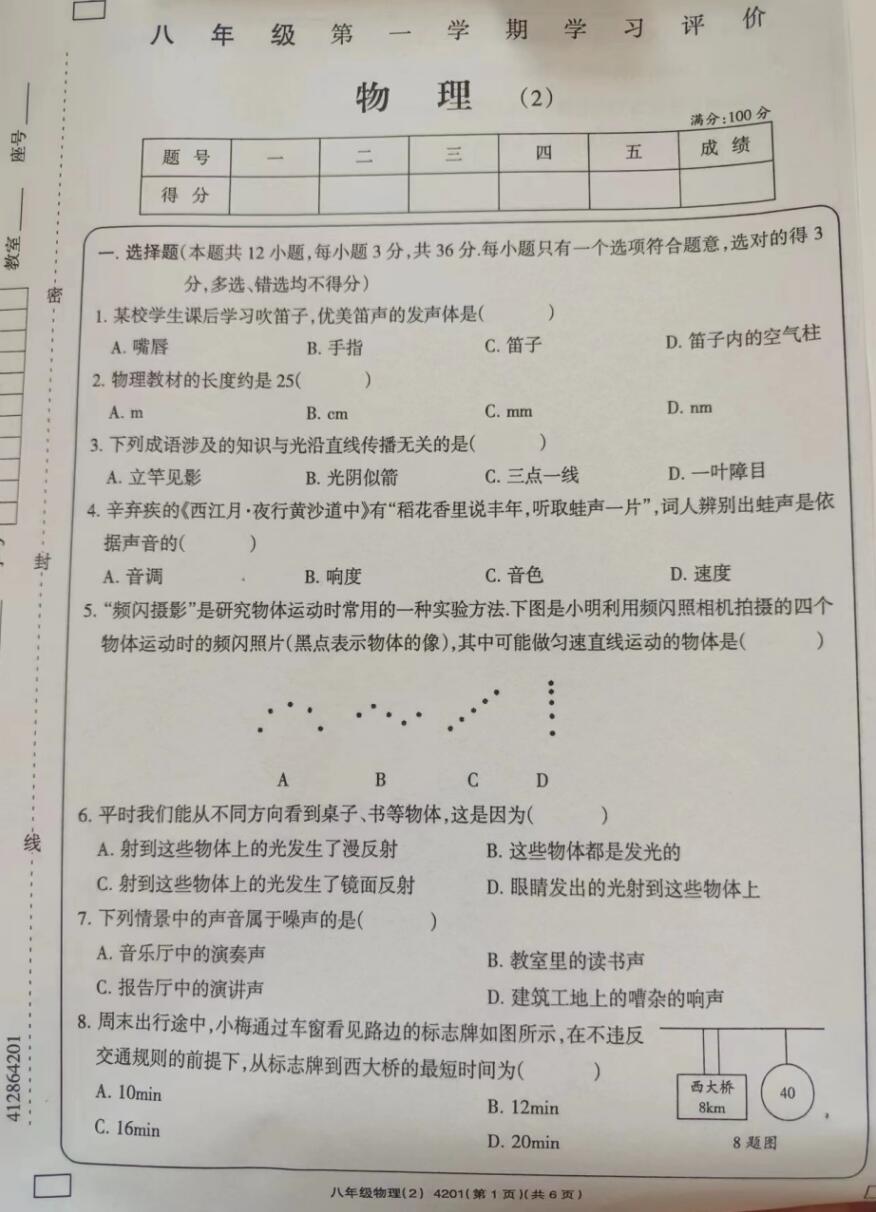 八年级第一学期学习评价
物理（2）
满分:100分
题号 一 二 三 四 五 成绩
得分
一. 选择题(本题共12小题,每小题3分,共36分.每小题只有一个选项符合题意,选对的得3
分,多选、错选均不得分)
1. 某校学生课后学习吹笛子,优美笛声的发声体是( )
A. 嘴唇 B. 手指 C. 笛子 D. 笛子内的空气柱
2. 物理教材的长度约是25( )
A. m B. cm C. mm D. nm
3. 下列成语涉及的知识与光沿直线传播无关的是( )
A. 立竿见影 B. 光阴似箭 C. 三点一线 D. 一叶障目
4. 辛弃疾的《西江月·夜行黄沙道中》有“稻花香里说丰年,听取蛙声一片”,词人辨别出蛙声是依
据声音的( )
A. 音调 B. 响度 C. 音色 D. 速度
5. “频闪摄影”是研究物体运动时常用的一种实验方法.下图是小明利用频闪照相机拍摄的四个
物体运动时的频闪照片(黑点表示物体的像),其中可能做匀速直线运动的物体是( )
A B C D
6. 平时我们能从不同方向看到桌子、书等物体,这是因为( )
A. 射到这些物体上的光发生了漫反射 B. 这些物体都是发光的
C. 射到这些物体上的光发生了镜面反射 D. 眼睛发出的光射到这些物体上
7. 下列情景中的声音属于噪声的是( )
A. 音乐厅中的演奏声 B. 教室里的读书声
C. 报告厅中的演讲声 D. 建筑工地上的嘈杂的响声
8. 周末出行途中,小梅通过车窗看见路边的标志牌如图所示,在不违反
交通规则的前提下,从标志牌到西大桥的最短时间为( )
A. 10min B. 12min
C. 16min D. 20min
西大桥
8km
40
8题图
八年级物理(2) 4201(第1页)(共6页)
座号
教室
密
封
线
412864201